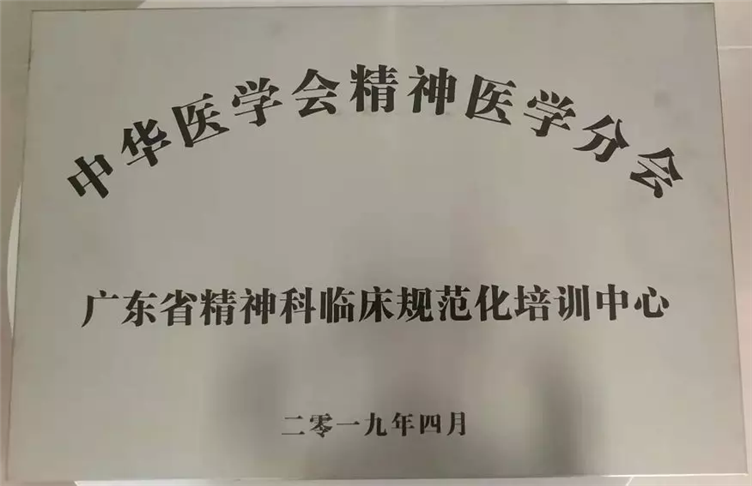 中华医学会精神医学分会
广东省精神科临床规范化培训中心
二零一九年四月